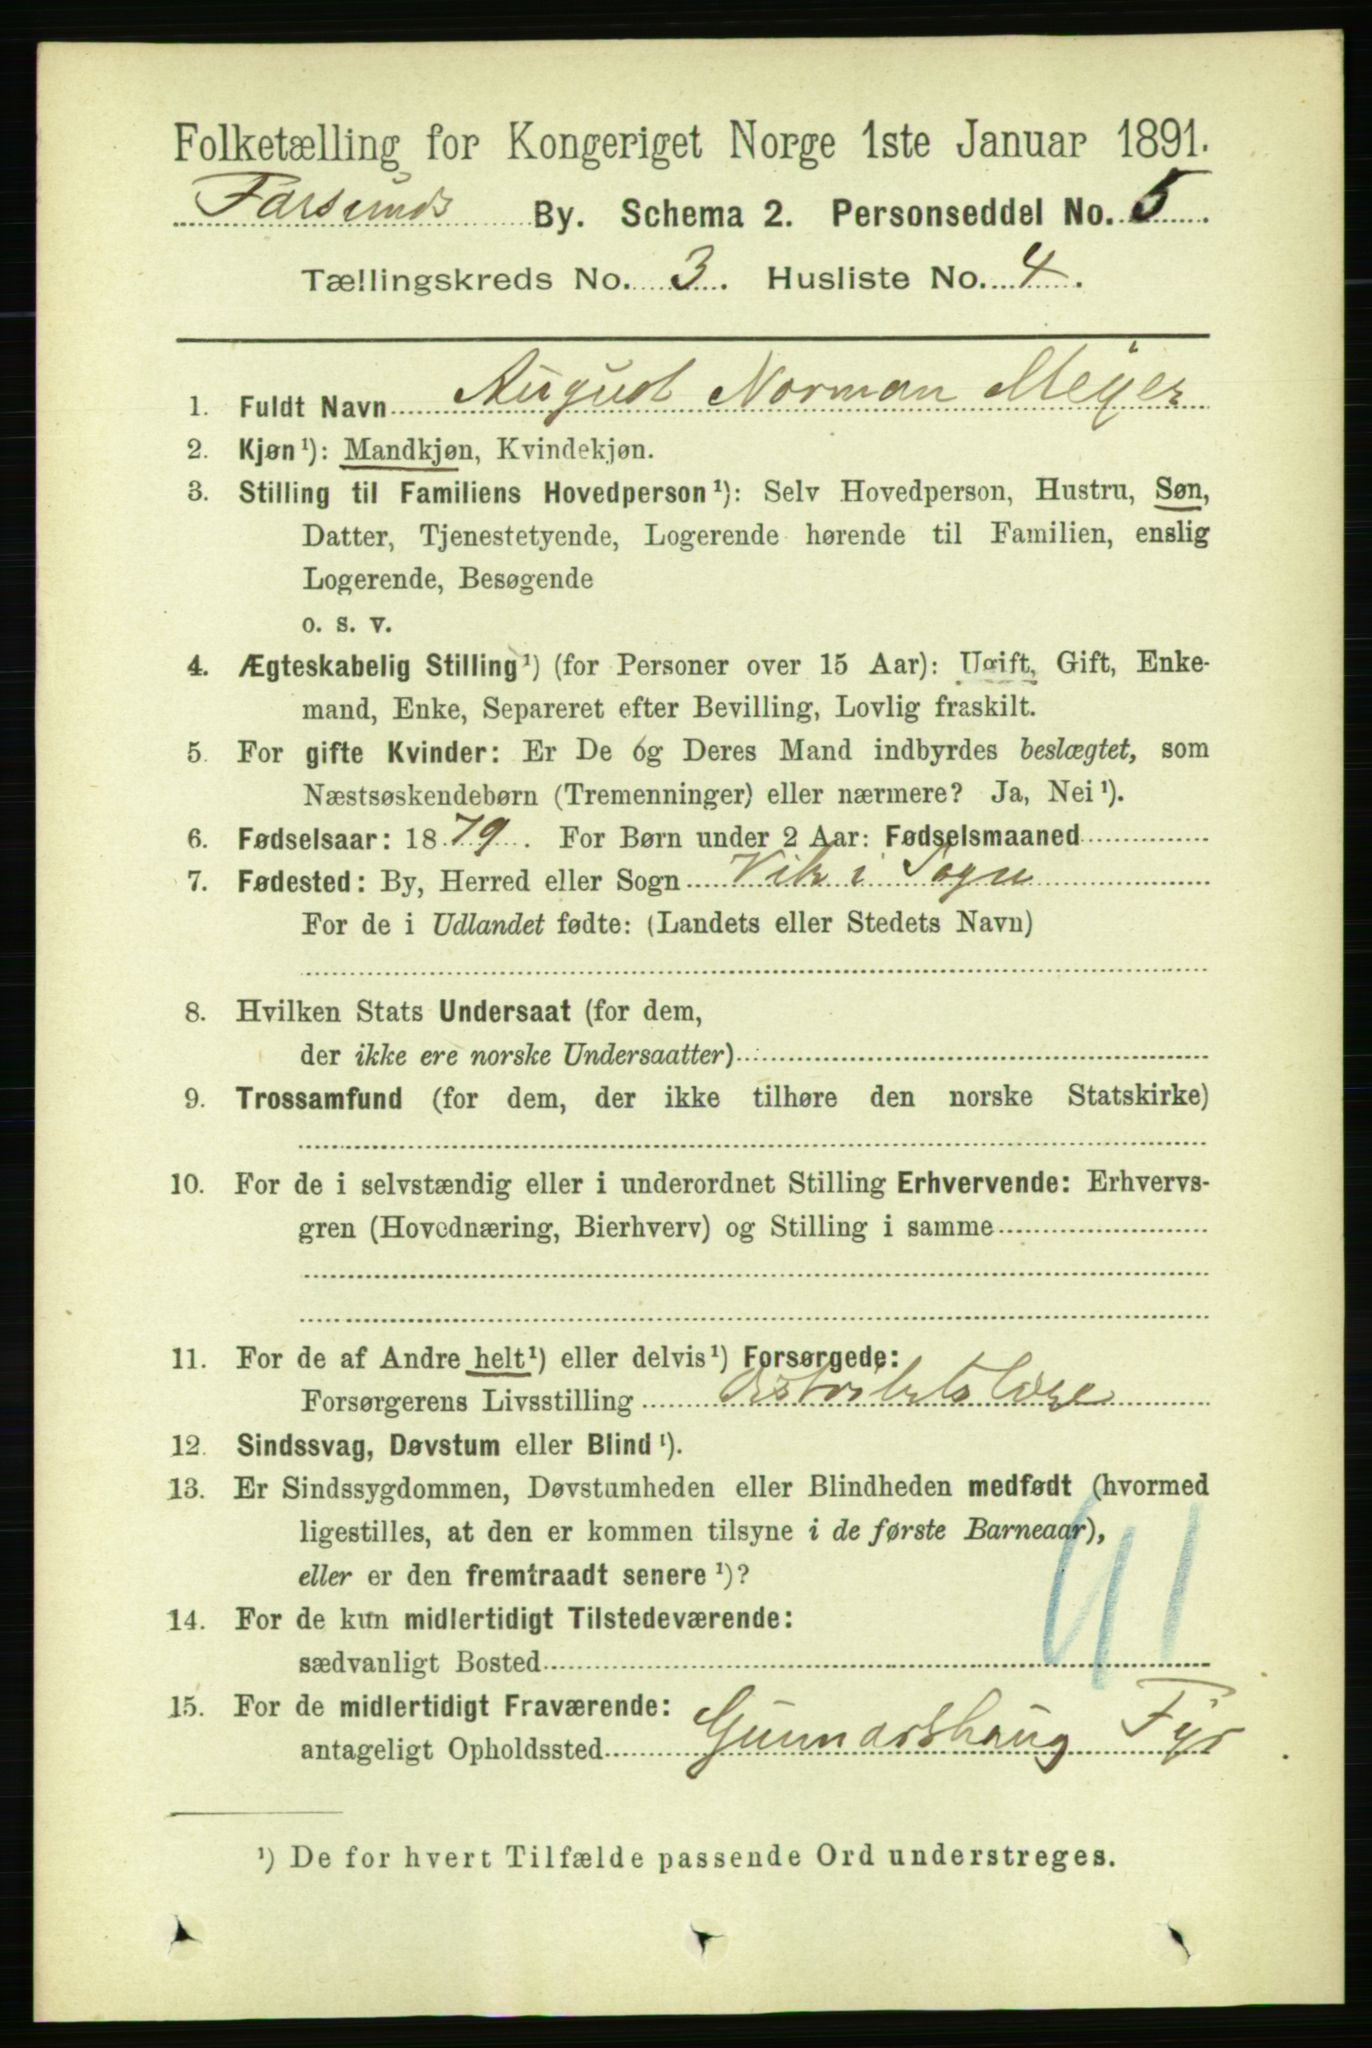 Folketælling for Kongeriget Norge 1ste Januar 1891.
Farsunds By. Schema 2. Personseddel No. 5
Tællingskreds No. 3. Husliste No. 4.
1. Fuldt Navn August Norman Meyer
2. Kjøn¹): Mandkjøn, Kvindekjøn.
3. Stilling til Familiens Hovedperson¹): Selv Hovedperson, Hustru, Søn,
Datter, Tjenestetyende, Logerende hørende til Familien, enslig
Logerende, Besøgende
o. s. v.
4. Ægteskabelig Stilling¹) (for Personer over 15 Aar): Ugift, Gift, Enke-
mand, Enke, Separeret efter Bevilling, Lovlig fraskilt.
5. For gifte Kvinder: Er De og Deres Mand indbyrdes beslægtet, som
Næstsøskendebørn (Tremenninger) eller nærmere? Ja, Nei¹).
6. Fødselsaar: 1879. For Børn under 2 Aar: Fødselsmaaned
7. Fødested: By, Herred eller Sogn Vik i Sogn
For de i Udlandet fødte: (Landets eller Stedets Navn)
8. Hvilken Stats Undersaat (for dem,
der ikke ere norske Undersaatter)
9. Trossamfund (for dem, der ikke tilhøre den norske Statskirke)
10. For de i selvstændig eller i underordnet Stilling Erhvervende: Erhvervs-
gren (Hovednæring, Bierhverv) og Stilling i samme
11. For de af Andre helt¹) eller delvis¹) Forsørgede:
Forsørgerens Livsstilling distriktslæge
12. Sindssvag, Døvstum eller Blind¹).
13. Er Sindssygdommen, Døvstumheden eller Blindheden medfødt (hvormed
ligestilles, at den er kommen tilsyne i de første Barneaar),
eller er den fremtraadt senere¹)?
14. For de kun midlertidigt Tilstedeværende:
sædvanligt Bosted
15. For de midlertidigt Fraværende:
antageligt Opholdssted Gunnarshaug Fyr
¹) De for hvert Tilfælde passende Ord understreges.